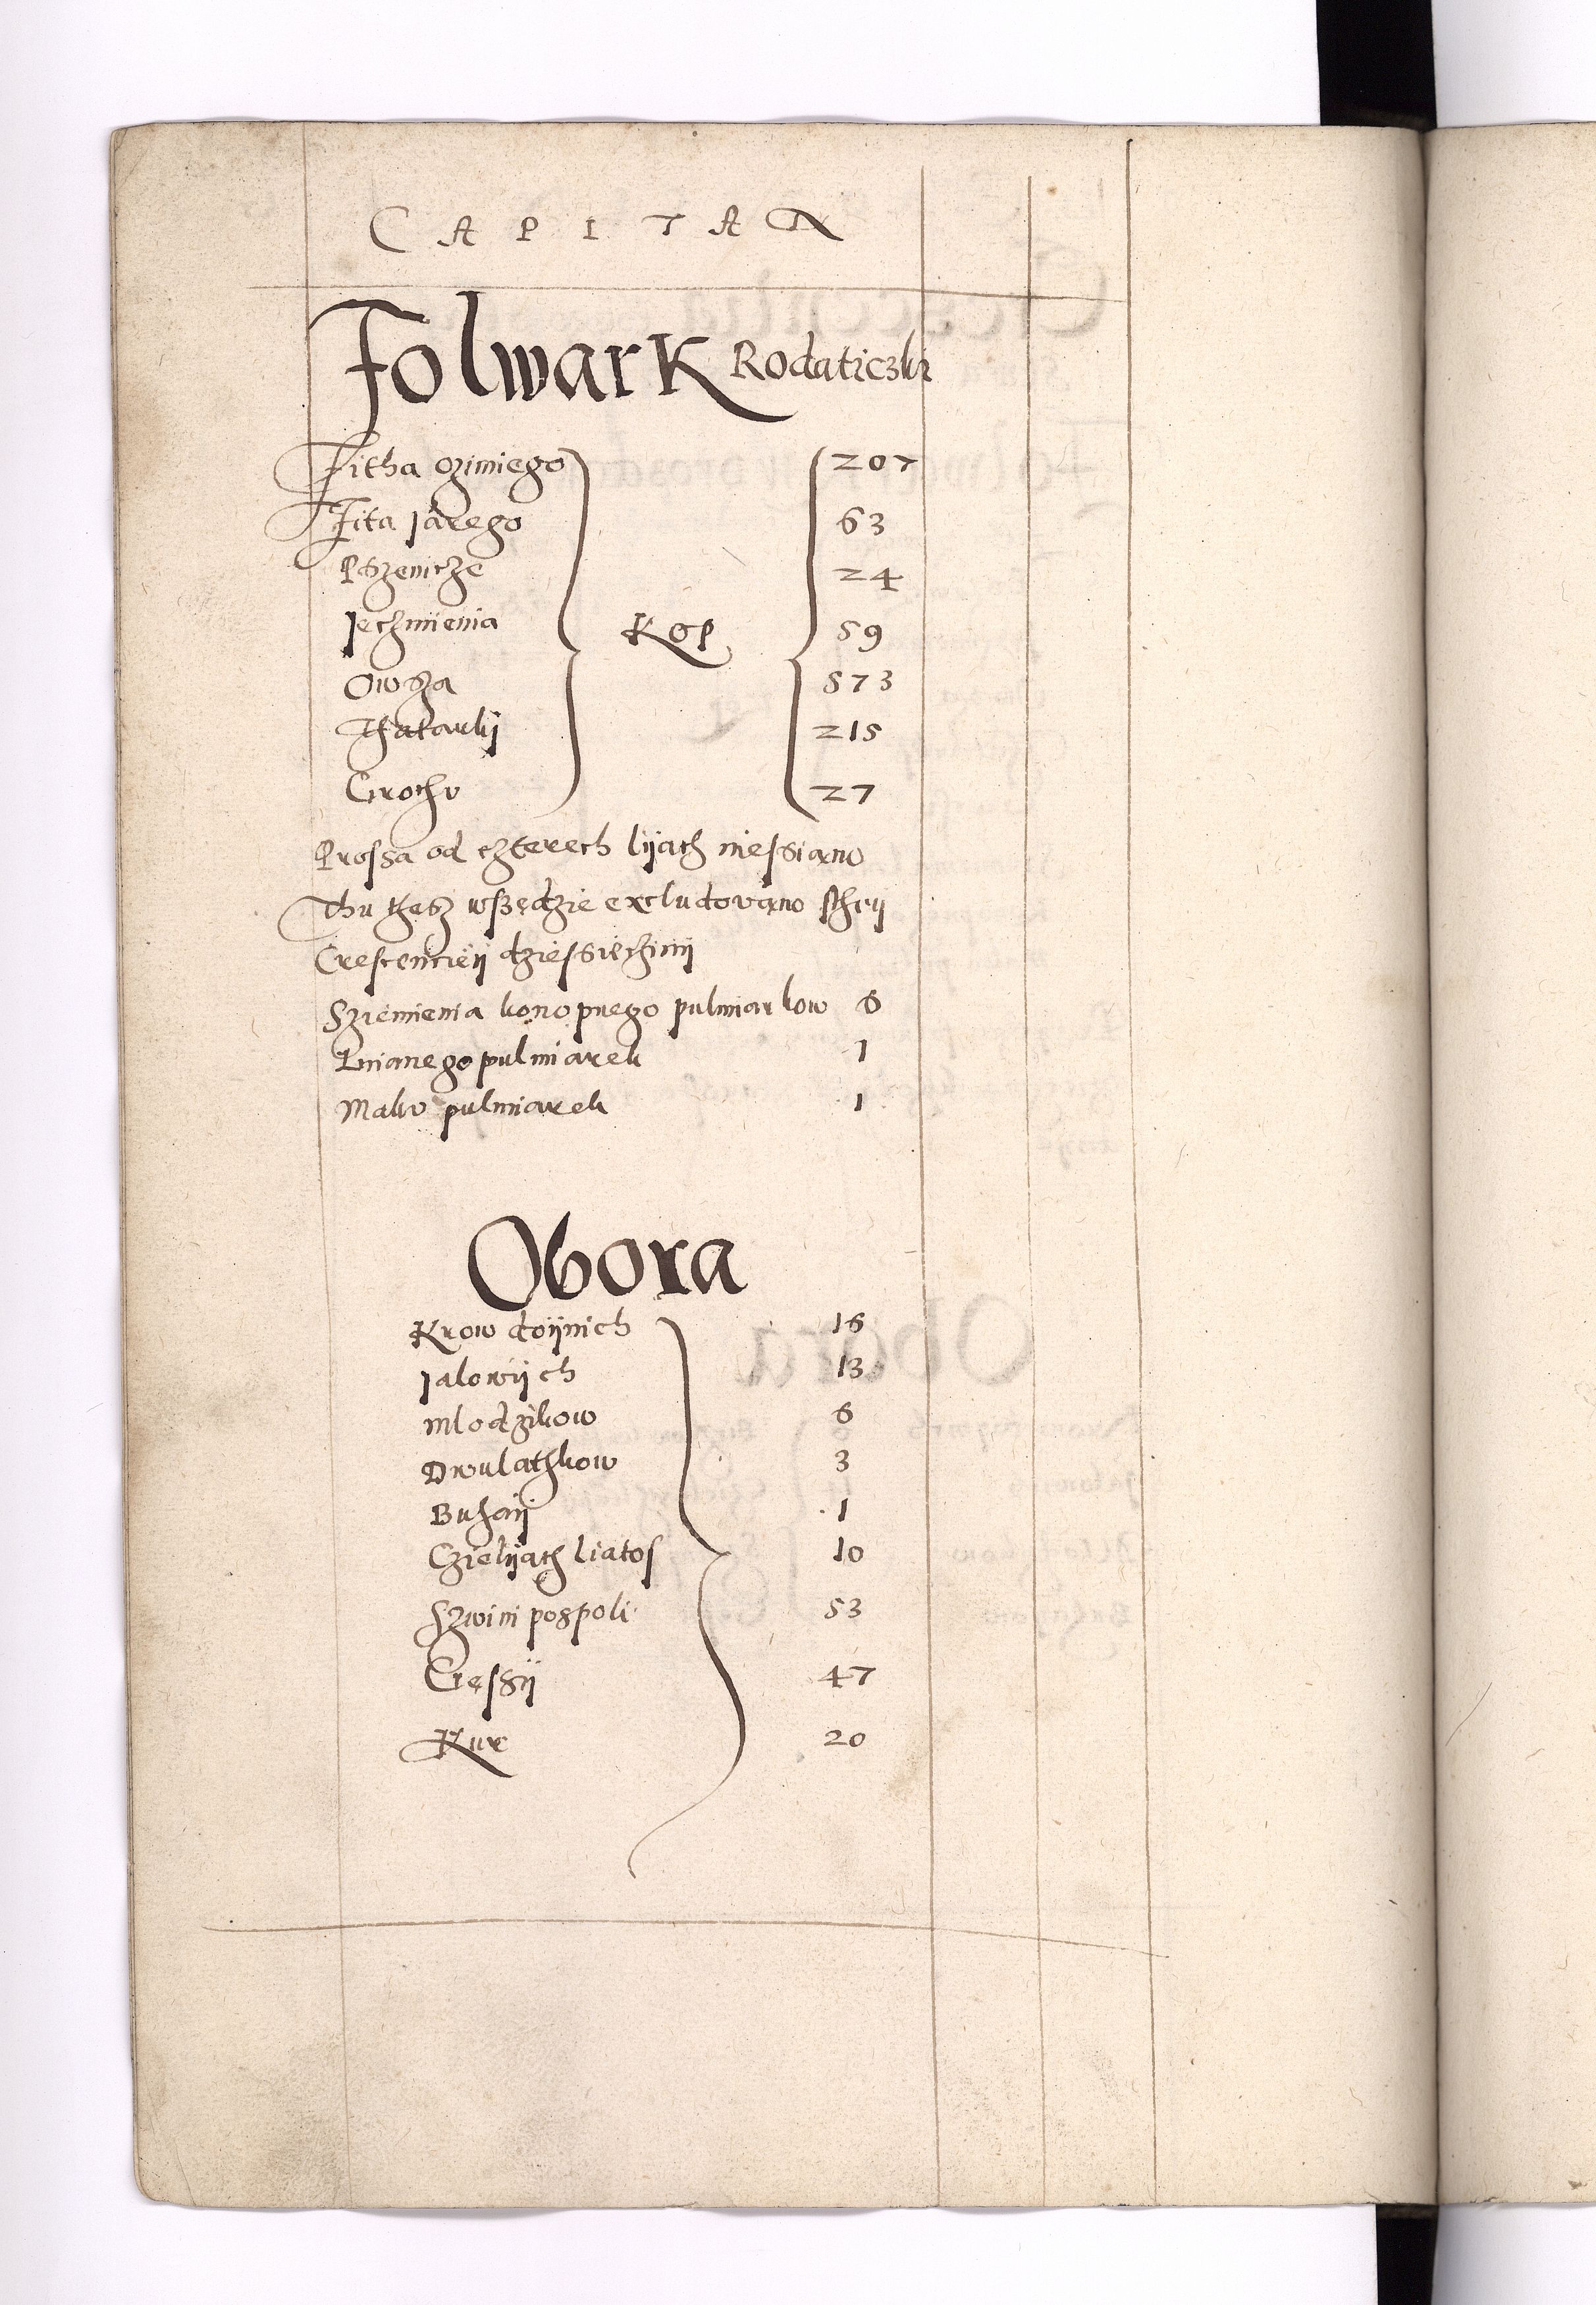 CAPITAN
Folwark Rodaticzki
Zitha oziniego 207
Zita jarego 63
Pszenicze 24
Jeczmienia Kop 59
Owsza 573
Thatarki 215
Grochu 27
Prossa od czterech lijath niessiano
Thu thesz wszędzie excludovano stheij
Crescencieij dziessięcziny
Sziemienia konopnego pulmiarkow 6
Lnianego pulmiarek 1
Maku pulmiarek 1
Obora
Krow doijnich 16
Jalowijch 13
Mlodzikow 6
Dwulathkow 3
Buhaij 1
Czielijath liatos 10
Szwini pospoli 53
Gęssij 47
Kur 20